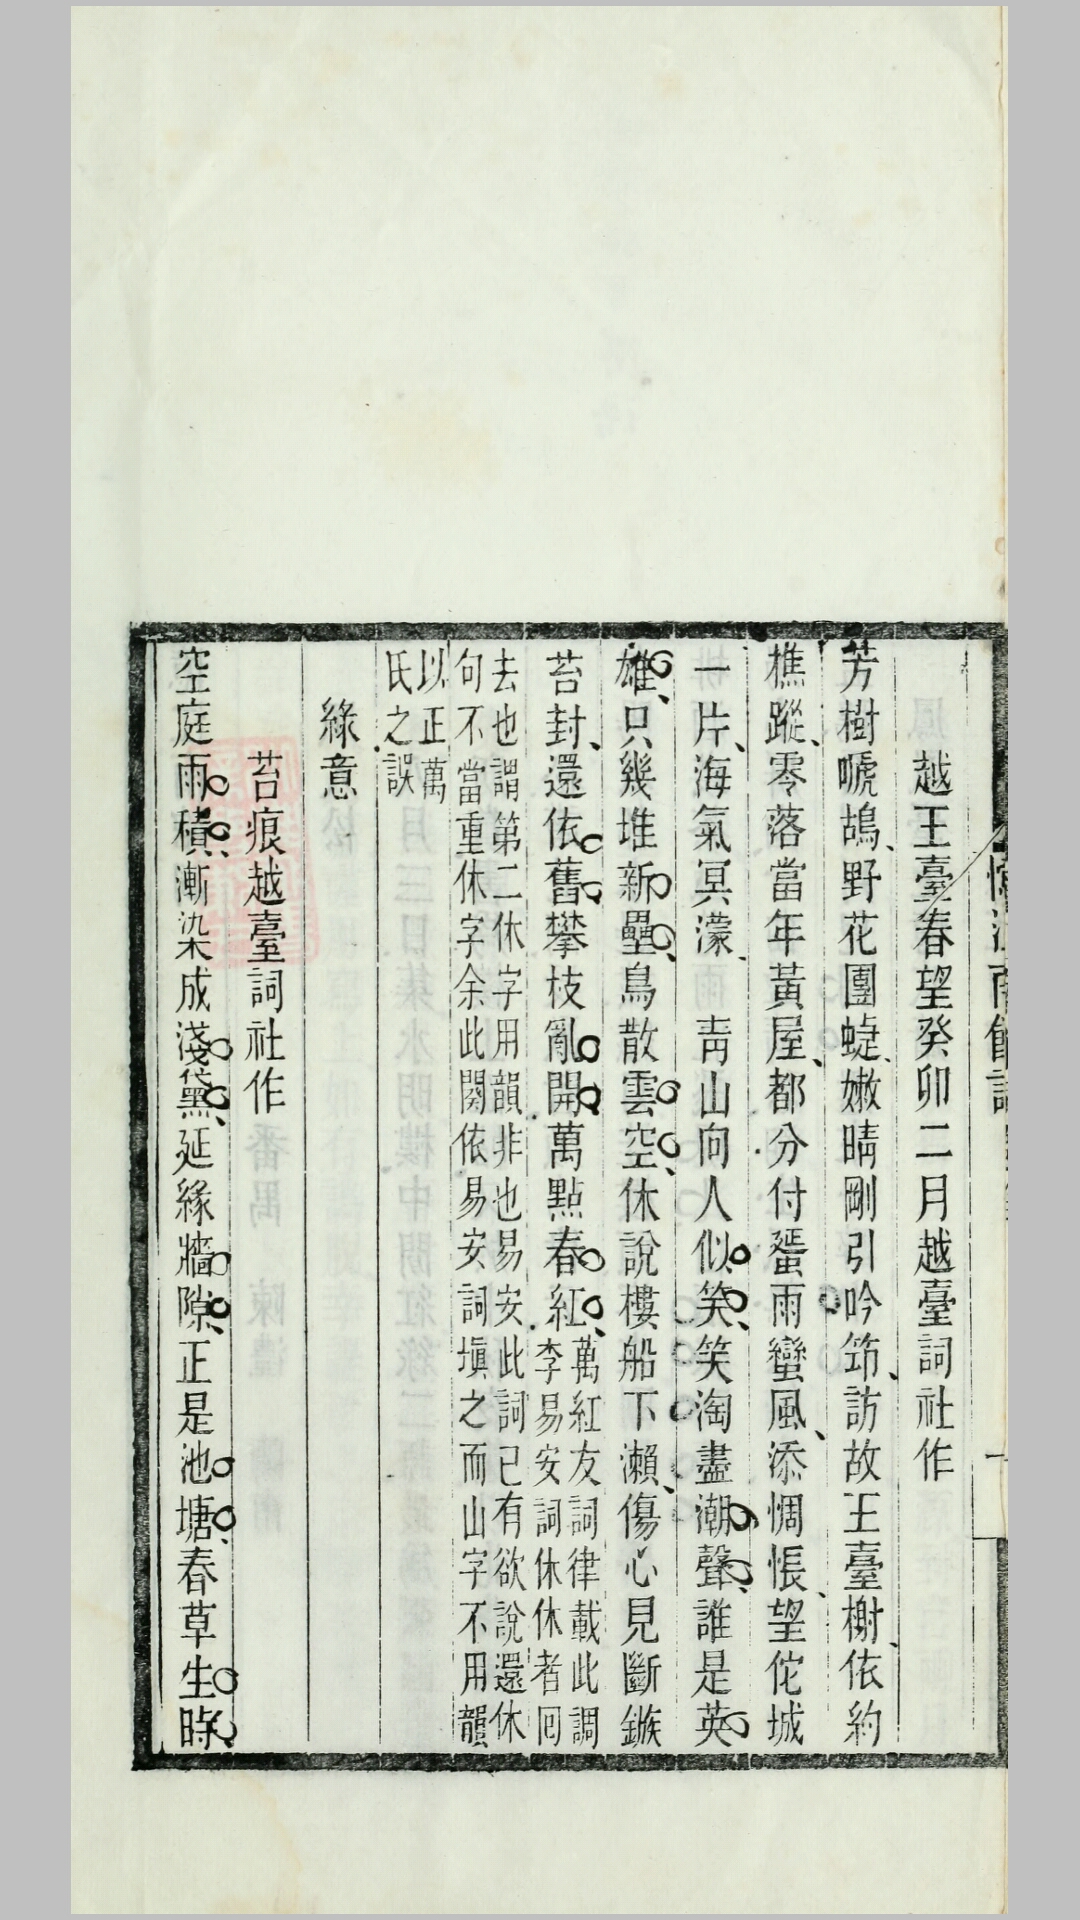 越王臺春望癸卯二月越臺詞社作
芳樹嗁鴣野花團蜨嫩晴剛引吟筇訪故王臺榭依約
樵蹤零落當年黃屋都分付蜑雨蠻風添惆悵望佗城
一片海氣冥濛 靑山向人似笑笑淘盡潮聲誰是英
雄只幾堆新壘鳥散雲空休說樓船下瀨傷心見斷鏃
苔封還依舊攀枝亂開萬點春紅
萬紅友詞律載此調
李易安詞休休者囘
去也謂第二休字用韻非也易安此詞已有欲說還休
句不當重休字余此闋依易安詞塡之而山字不用韻
以正萬
氏之誤
綠意
苔痕越臺詞社作
空庭雨積漸染成淺黛延緣牆隙正是池塘春草生時